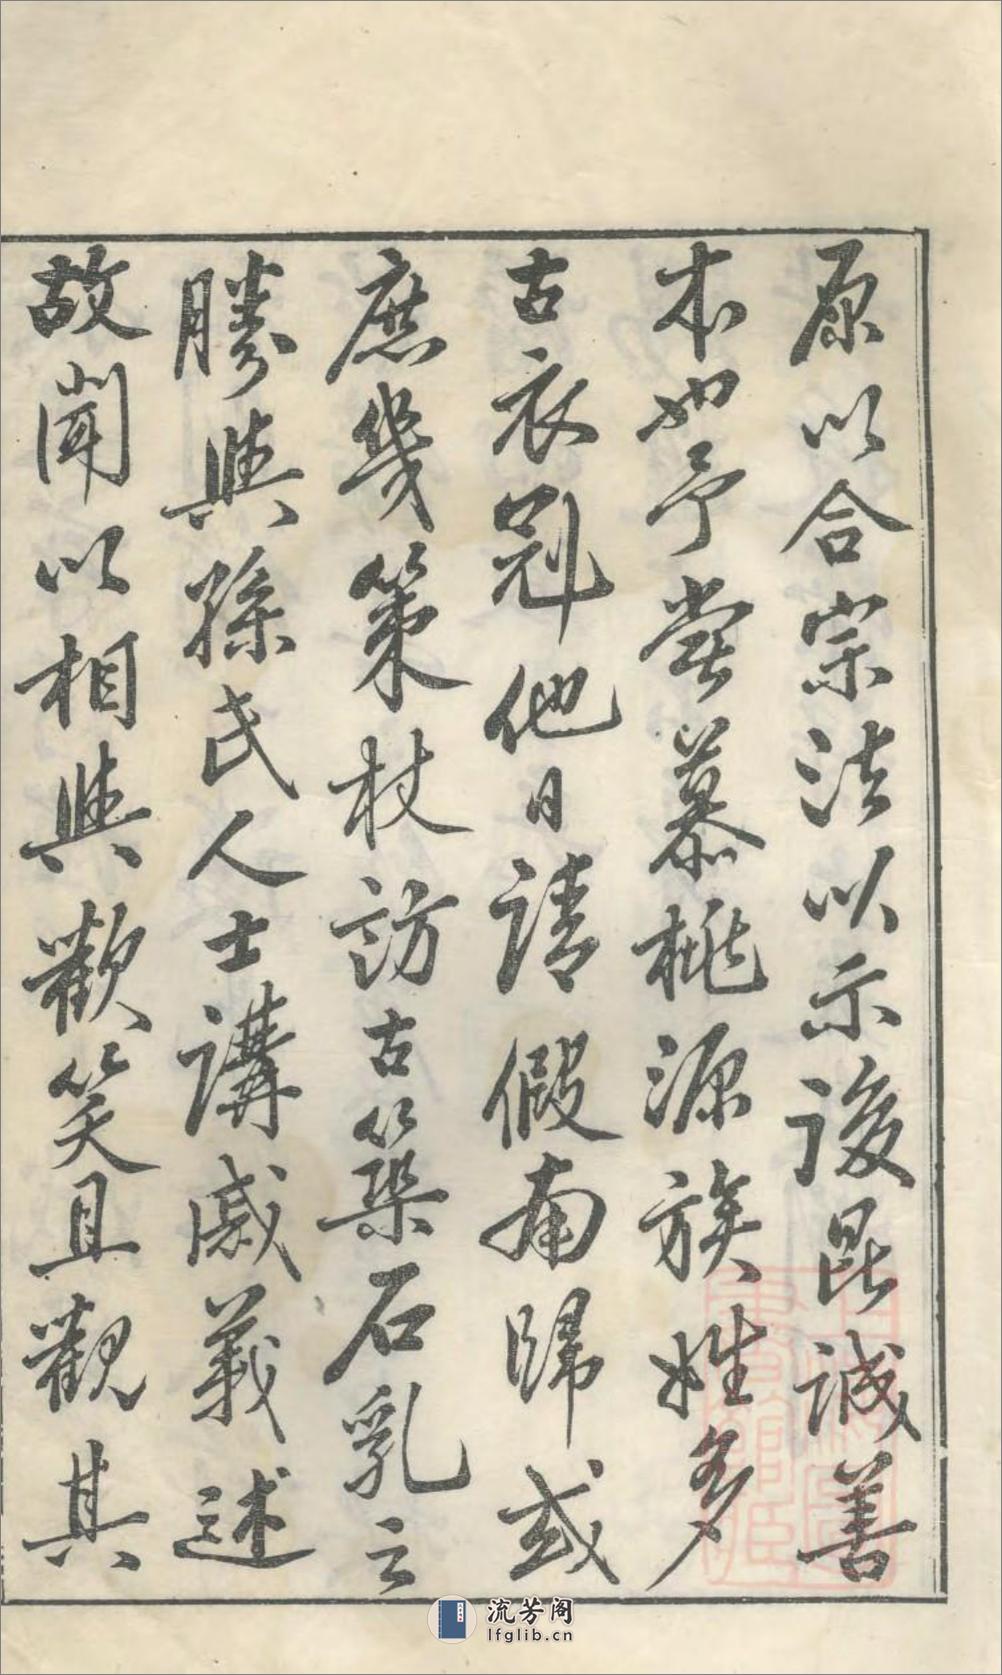 原以合宗法以示後昆誠善
本也予嘗慕桃源族姓多
古衣冠他日請假南歸或
庶幾策杖訪古築石乳之
勝與孫氏人士講感義述
故聞以相與歡笑且觀其
流芳阁
lfglib.cn